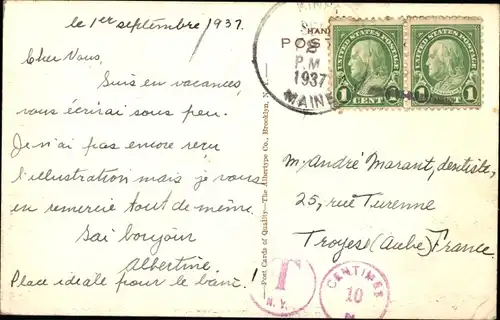 le 1er septembre/1937.
Cher Vous,
Suis en vacances,
vous écrirai sous peu.
Je n'ai pas encore reçu
l'illustration mais je vous
en remercie tout de même.
Bonjour
Albertine
Place idéale pour le bain!
Post Cards of Quality—The Albertype Co., Brooklyn, N. Y.
HAN
POST
2
P.M
1937
MAINE
UNITED STATES POSTAGE
1 CENT 1
UNITED STATES POSTAGE
1 CENT 1
M. André Marant, dentiste,
25, rue Turenne
Troyes (Aube) France.
T
N.Y.
CENTIMES
10